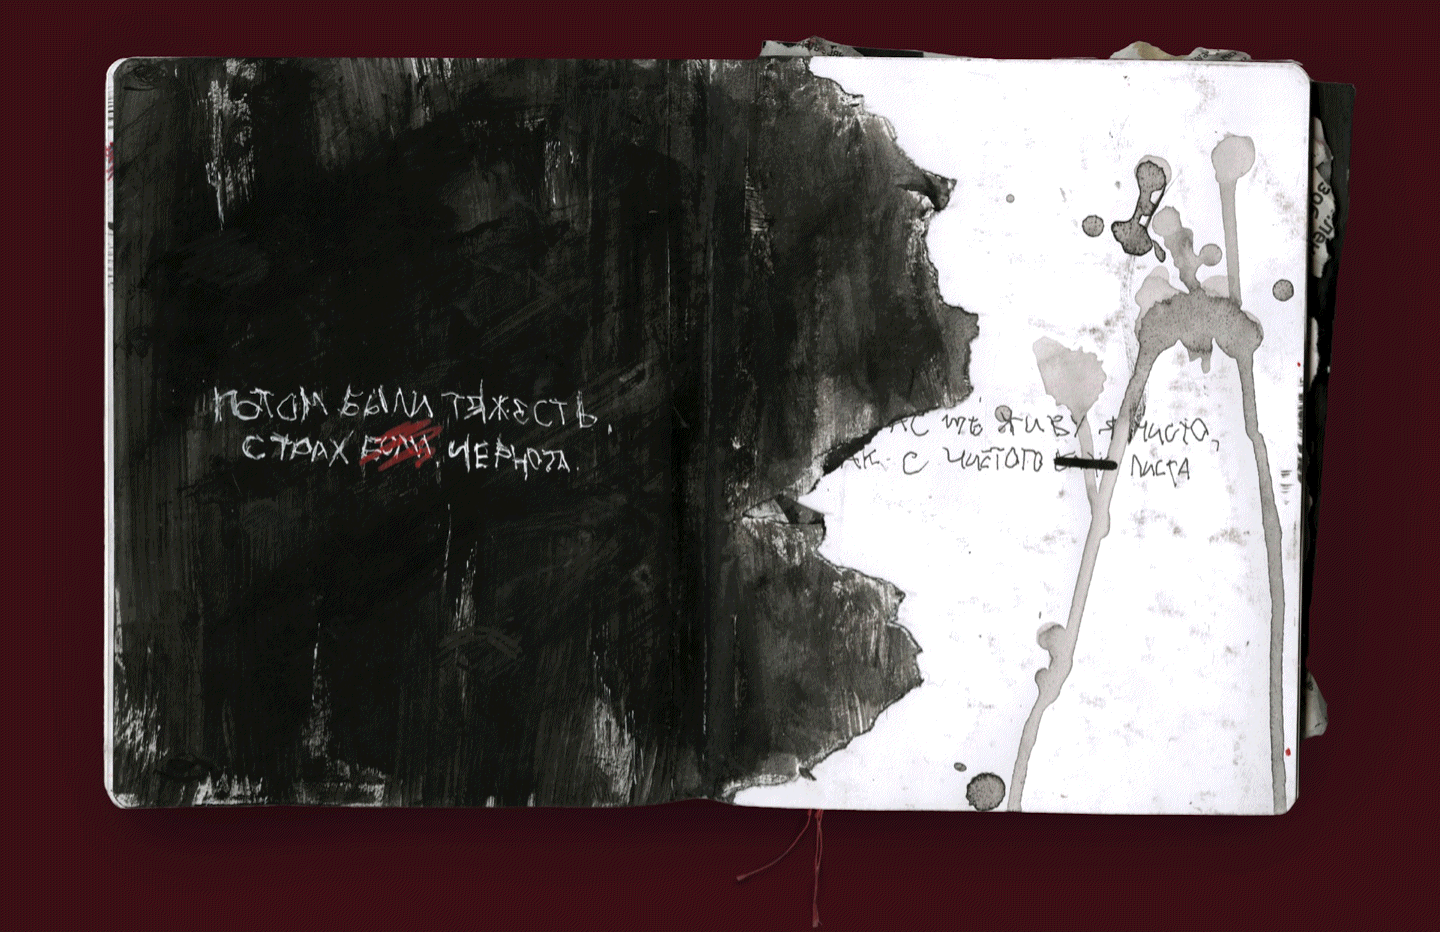 ПОТОМ БЫЛИ ТЯЖЕСТЬ,
СТРАХ БОЛИ, ЧЕРНОТА.
АС ЖЕ Я ЖИВУ Я ЧИСТО,
АК С ЧИСТОГО ЛИСТА